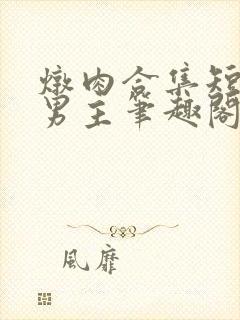 燉肉合集短
男主筆趣閣
風靡